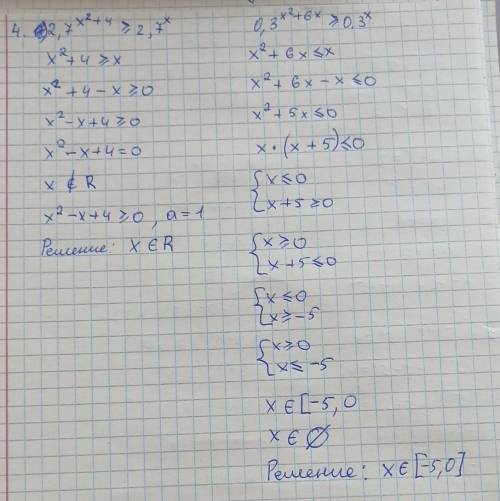 4. 2,7^(x²+4) ≥ 2,7^x
x²+4 ≥ x
x²+4-x ≥ 0
x²-x+4 ≥ 0
x²-x+4 = 0
x ∉ R
x²-x+4 ≥ 0, a = 1
Решение: x ∈ R
0,3^(x²+6x) ≥ 0,3^x
x²+6x ≤ x
x²+6x-x ≤ 0
x²+5x ≤ 0
x·(x+5) ≤ 0
{x ≤ 0
x+5 ≥ 0
{x ≥ 0
x+5 ≤ 0
{x ≤ 0
x ≥ -5
{x ≥ 0
x ≤ -5
x ∈ [-5, 0
x ∈ ∅
Решение: x ∈ [-5,0]